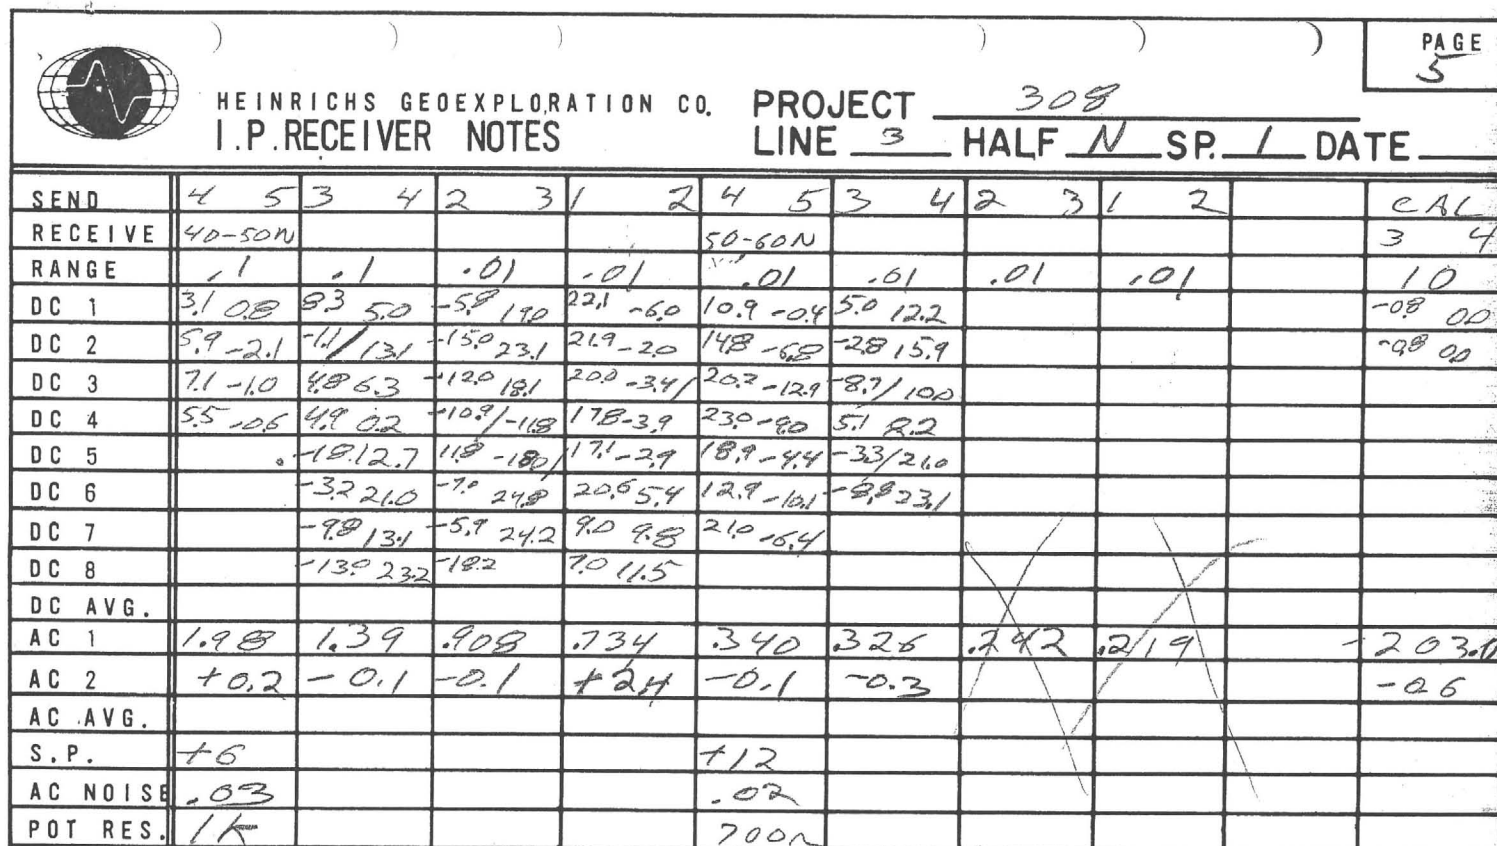 PAGE
5
HEINRICHS GEOEXPLORATION CO. PROJECT 308
I.P. RECEIVER NOTES LINE 3 HALF N SP. 1 DATE
SEND 4 5 3 4 2 3 1 2 4 5 3 4 2 3 1 2 CAL
RECEIVE 40-50N 50-60N 3 4
RANGE .1 .1 .01 .01 .01 .01 .01 .01 10
DC 1 3.1 0.8 8.3 5.0 -5.8 19.0 22.1 -6.0 10.9 -0.4 5.0 12.2 -0.8 0.0
DC 2 5.9 -2.1 -1.1/13.1 -15.0 23.1 21.9 -2.0 14.8 -6.8 -2.8 15.9 -0.8 0.0
DC 3 7.1 -1.0 4.8 6.3 -12.0 18.1 20.0 -3.4/ 20.2 -12.9 -8.7/10.0
DC 4 5.5 -0.6 4.9 0.2 -10.9/-11.8 17.8 -3.9 23.0 -9.0 5.1 8.2
DC 5 12.7 11.8 -18.0/ 17.1 -2.9 18.9 -4.4 -3.3/21.0
DC 6 -3.2 21.0 -7.0 24.8 20.6 5.4 12.9 -10.1 -8.8 23.1
DC 7 -9.8 13.1 -5.9 24.2 9.0 9.8 21.0 -6.4
DC 8 -13.0 23.2 -18.2 7.0 11.5
DC AVG.
AC 1 1.98 1.39 .908 .734 .340 .326 .242 .219
AC 2 +0.2 -0.1 -0.1 +2.4 -0.1 -0.3 -0.6
AC AVG.
S.P. +6 +12
AC NOISE .03 .02
POT RES. 1K 700Ω